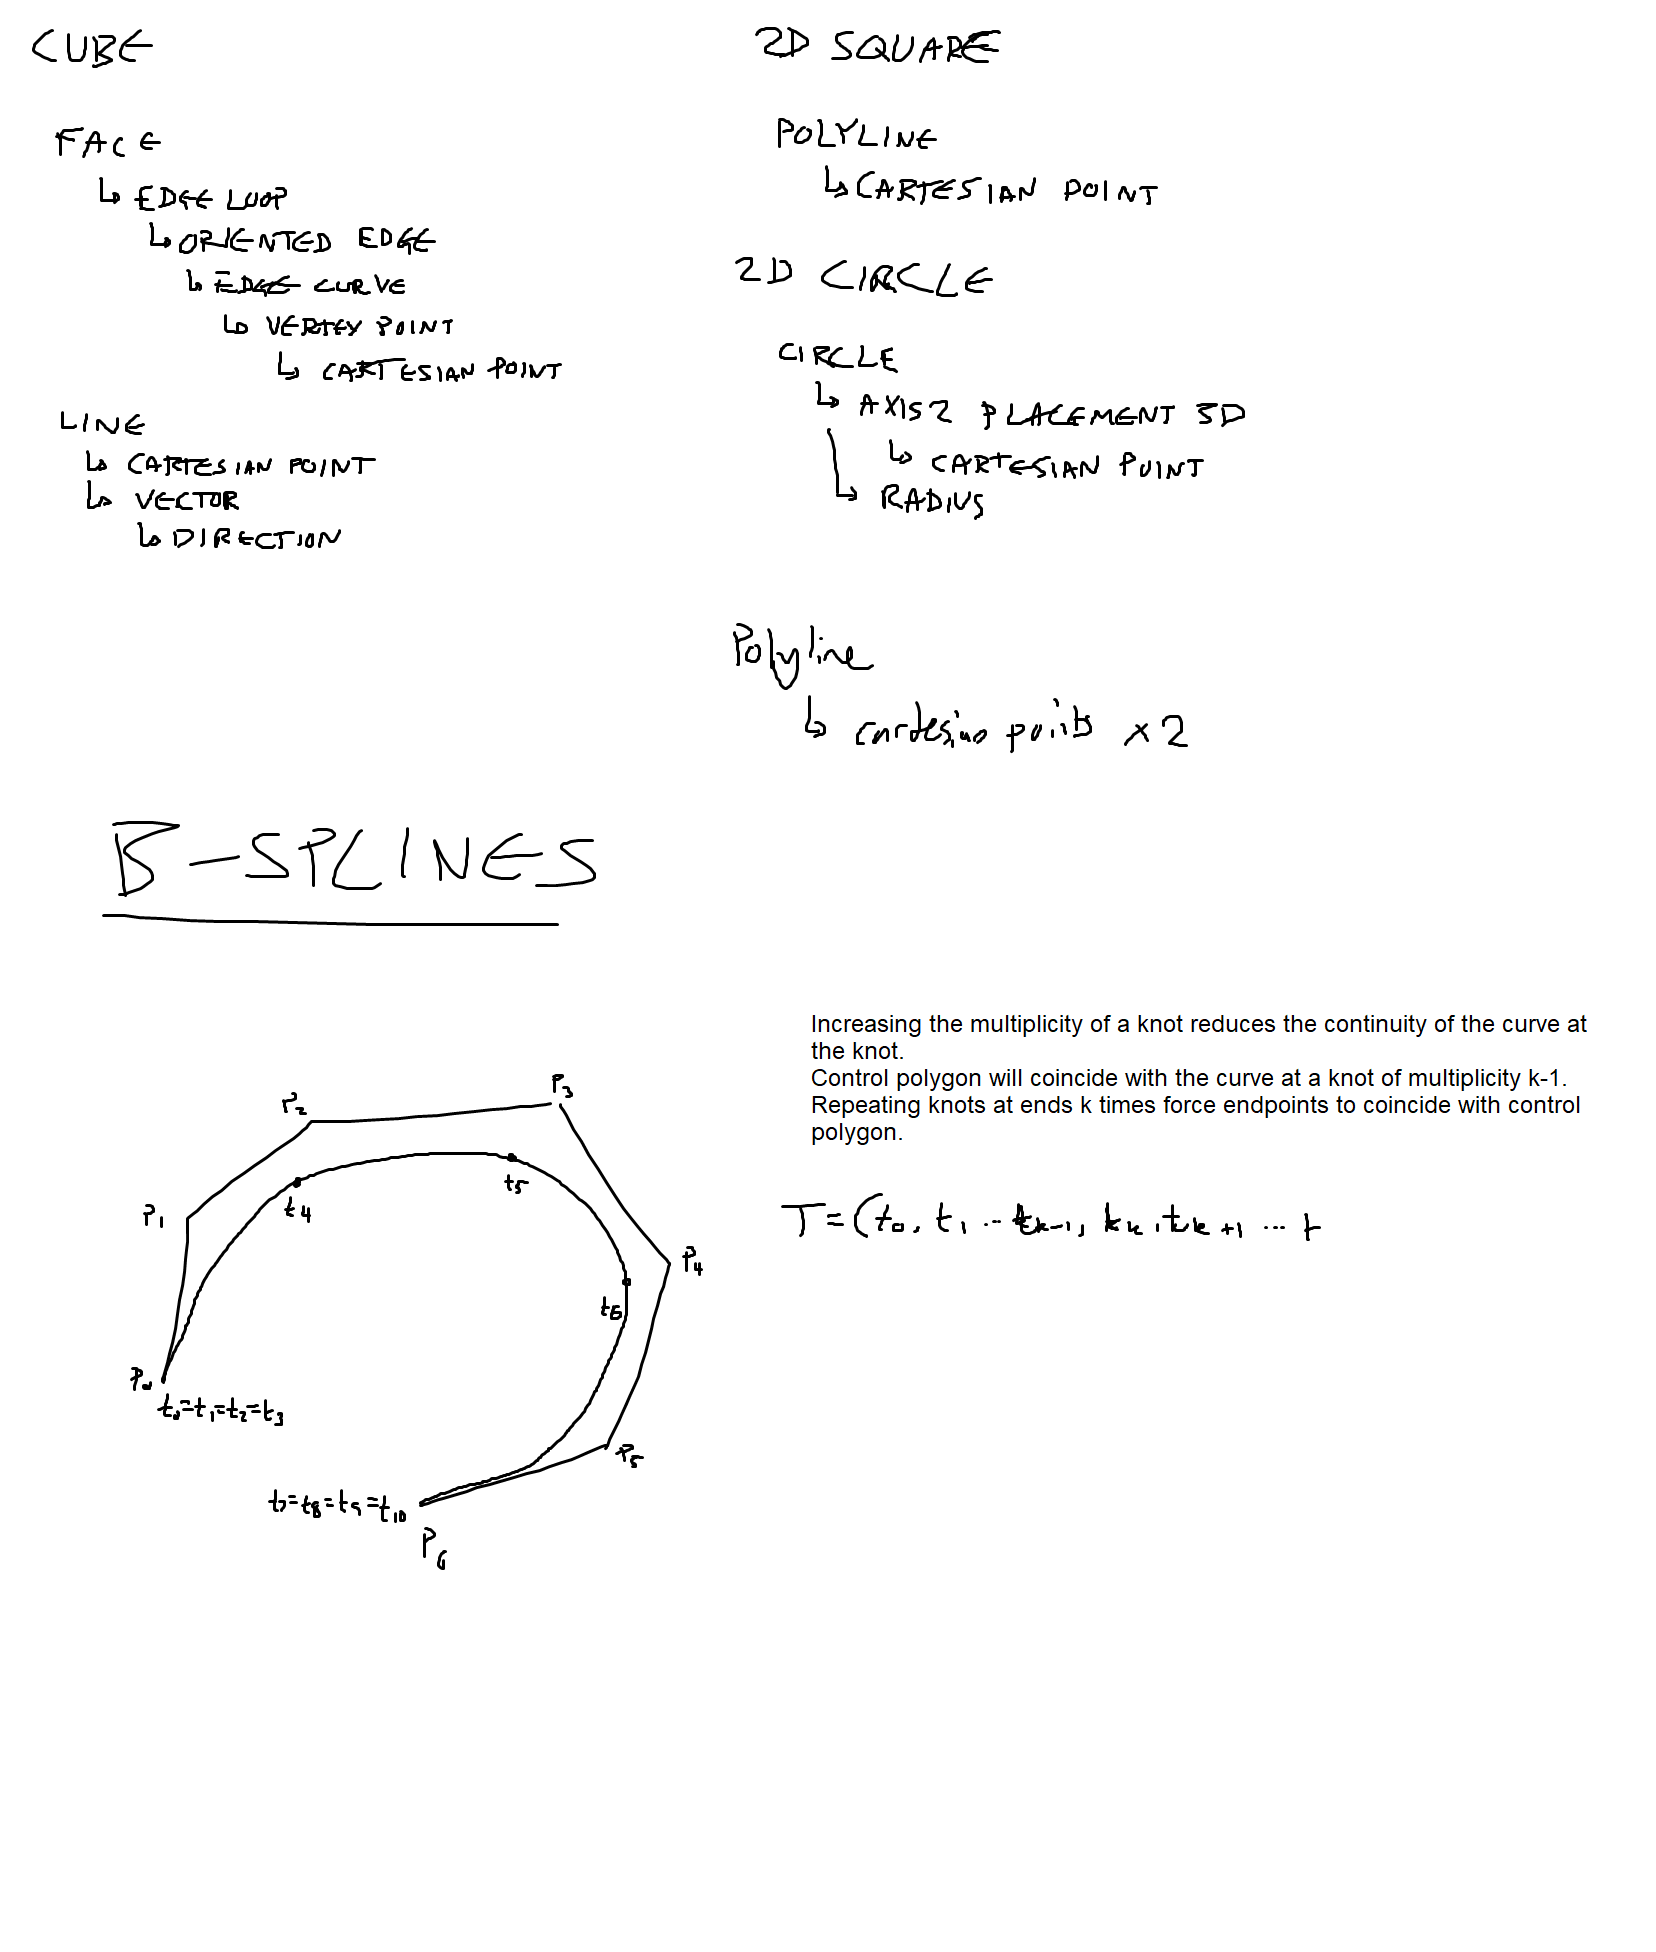 CUBE
FACE
↳ EDGE LOOP
↳ ORIENTED EDGE
↳ EDGE CURVE
↳ VERTEX POINT
↳ CARTESIAN POINT
LINE
↳ CARTESIAN POINT
↳ VECTOR
↳ DIRECTION
2D SQUARE
POLYLINE
↳ CARTESIAN POINT
2D CIRCLE
CIRCLE
↳ AXIS2 PLACEMENT 3D
↳ CARTESIAN POINT
↳ RADIUS
Polyline
↳ points x2
B-SPLINES
P3
P2
t5
P1
t4
P4
t6
P0
t0=t1=t2=t3
P5
t7=t8=t9=t10
P6
Increasing the multiplicity of a knot reduces the continuity of the curve at
the knot.
Control polygon will coincide with the curve at a knot of multiplicity k-1.
Repeating knots at ends k times force endpoints to coincide with control
polygon.
T=(t0, t1 ... tk-1, kk, tk+1 ... t